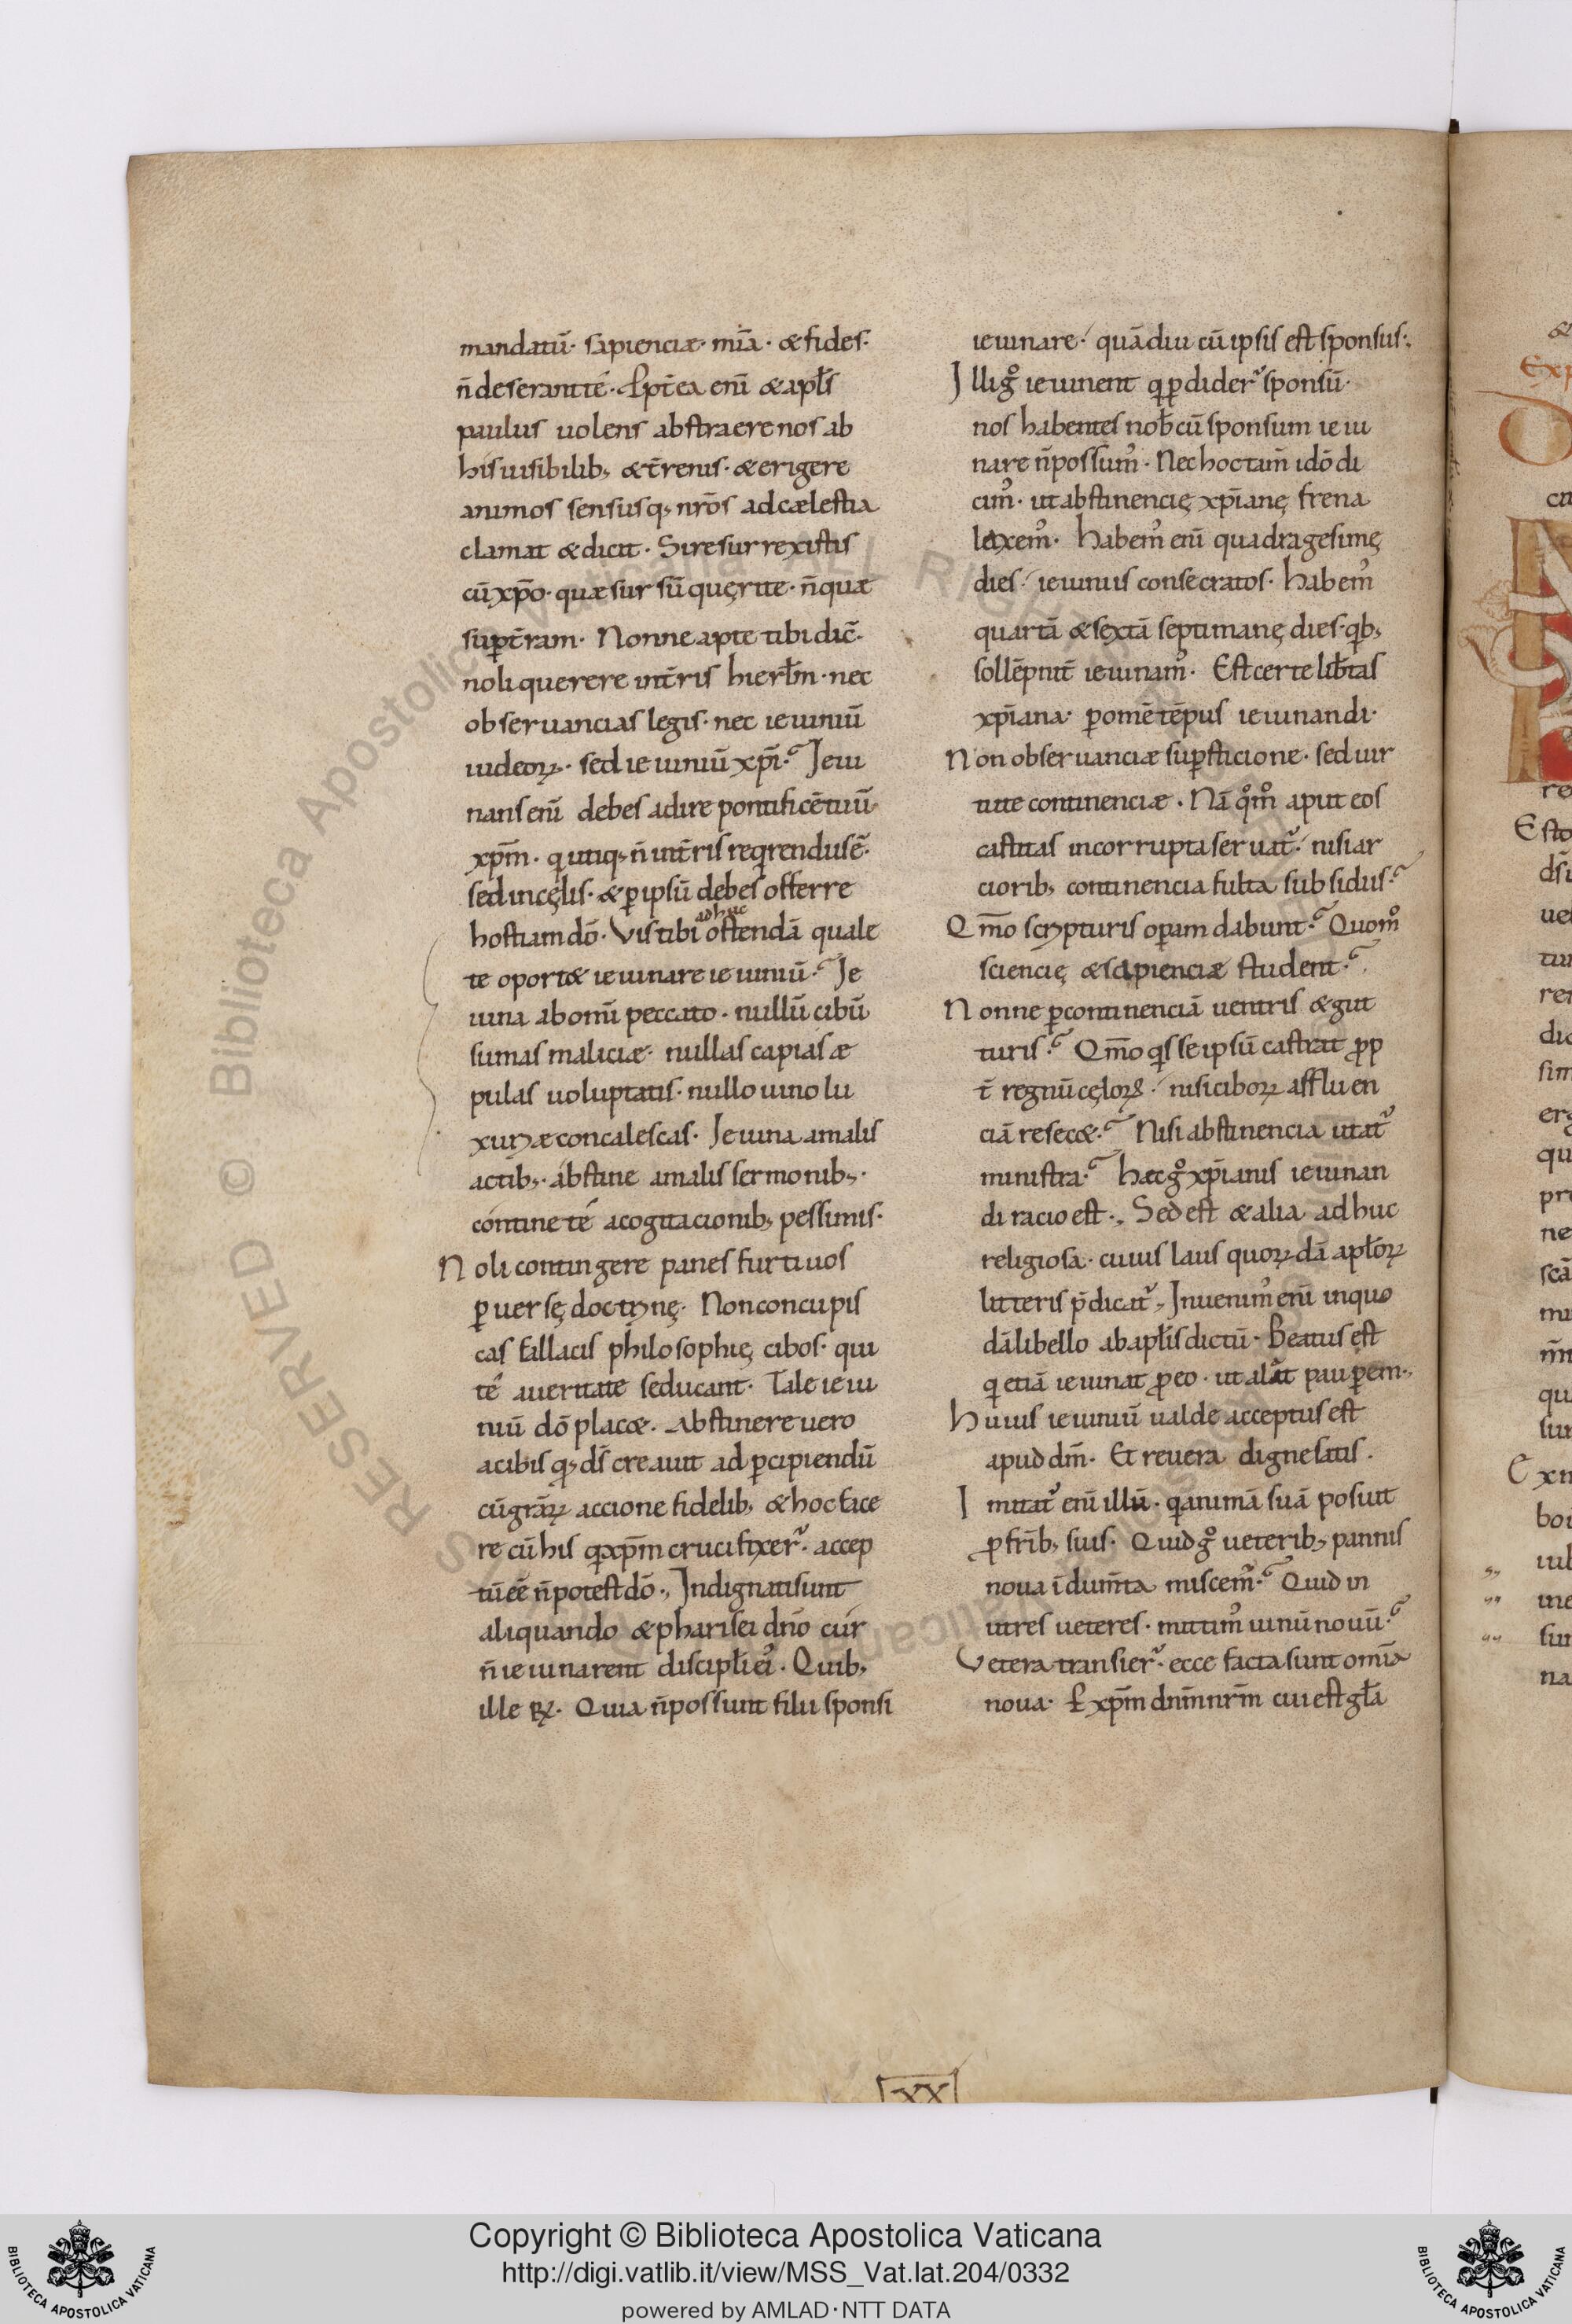 mandatū· sapienciæ· mīa· & fides·
n̄ deserant té· Ppt̄ea enī & apłs
paulus uolens abstraere nos ab
his uisibilib; & t̄renis· & erigere
animos sensusq; nr̄os ad cælestia
clamat & dicit· Si resurrexistis
cū xp̄o· quæ sursū quęrite· n̄ quæ
sup t̄ram· Nonne apte tibi dic̄·
noli querere in t̄ris hierłm· nec
obseruancias legis· nec ieiuniū
iudeoꝝ· sed ieiuniū xp̄i· Ieiu
nans enī debes adire pontificē tuū
xp̄m· q utiq; n̄ in t̄ris reqrendus ē·
sed in cęlis· & ꝑ ipsū debes offerre
hostiam dō· Vis tibi adhuc ostendā quale
te oport& ieiunare ieiuniū· Ie
iuna ab omī peccato· nullū cibū
sumas maliciæ· nullas capias æ
pulas uoluptatis· nullo uino lu
xuriæ concalescas· Ieiuna a malis
actib;· abstine a malis sermonib;·
contine té a cogitacionib; pessimis·
Noli contingere panes furtiuos
ꝑuersę doctrinę· Non concupis
cas fallacis philosophię cibos· qui
té a ueritate seducant· Tale ieiu
niū dō plac&· Abstinere uero
a cibis q; ds̄ creauit ad ꝑcipiendū
cū gr̄aꝝ accione fidelib; & hoc face
re cū his q xp̄m crucifixer̄· accep
tū eē n̄ potest dō·, Indignati sunt
aliquando & pharisei dn̄o cur
n̄ ieiunarent discipłi ei᾽· Quib;
ille ꝶ· Quia n̄ possunt filii sponsi
ieiunare· quādiu cū ipsis est sponsus·,
Illi g° ieiunent q ꝑdider̄ sponsū·
nos habentes nob̄ cū sponsum ieiu
nare n̄ possum᾽· Nec hoc tam̄ idō di
cim᾽· ut abstinencię xp̄ianę frena
laxem᾽· Habem᾽ enī quadragesimę
dies· ieiuniis consecratos· Habem᾽
quartā & sextā septimanę dies· qb;
sollēpnit̄ ieiunam᾽· Est certe lib̄tas
xp̄iana· ꝑ omē tēpus ieiunandi·
Non obseruanciæ suꝑsticione· sed uir
tute continenciæ· Nā q°m° aput eos
castitas incorrupta seruat᾽· nisi ar
ciorib; continencia fulta subsidiis·
Qm̄o scripturis oꝑam dabunt· Quom°
sciencię & sapienciæ student·
Nonne ꝑ continenciā uentris & gut
turis· Qm̄o qis se ipsū castrat ꝓp
t̄ regnū cęloꝝ· nisi ciboꝝ affluen
ciā resec&· Nisi abstinencia utat᾽
ministra· Hæc g° xp̄ianis ieiunan
di racio est·, Sed est & alia adhuc
religiosa· cuius laus quoꝝdā apłoꝝ
litteris p̄dicat᾽·, Inuenim᾽ enī in quo
dā libello ab apłis dictū· Beatus est
q etiā ieiunat ꝓ eo· ut alat pauꝑem·,
Huius ieiuniū ualde acceptus est
apud dm̄· Et reuera digne satis·
Imitat᾽ enī illū· q animā suā posuit
ꝓ fr̄ib; suis· Quid g° ueterib; pannis
noua īdum̄ta miscem᾽· Quid in
utres ueteres· mittim᾽ uinū nouū·
Vetera transier̄· ecce facta sunt omīa
noua· P xp̄m dn̄m nr̄m cui est gła
XX
Copyright © Biblioteca Apostolica Vaticana
http://digi.vatlib.it/view/MSS_Vat.lat.204/0332
powered by AMLAD·NTT DATA